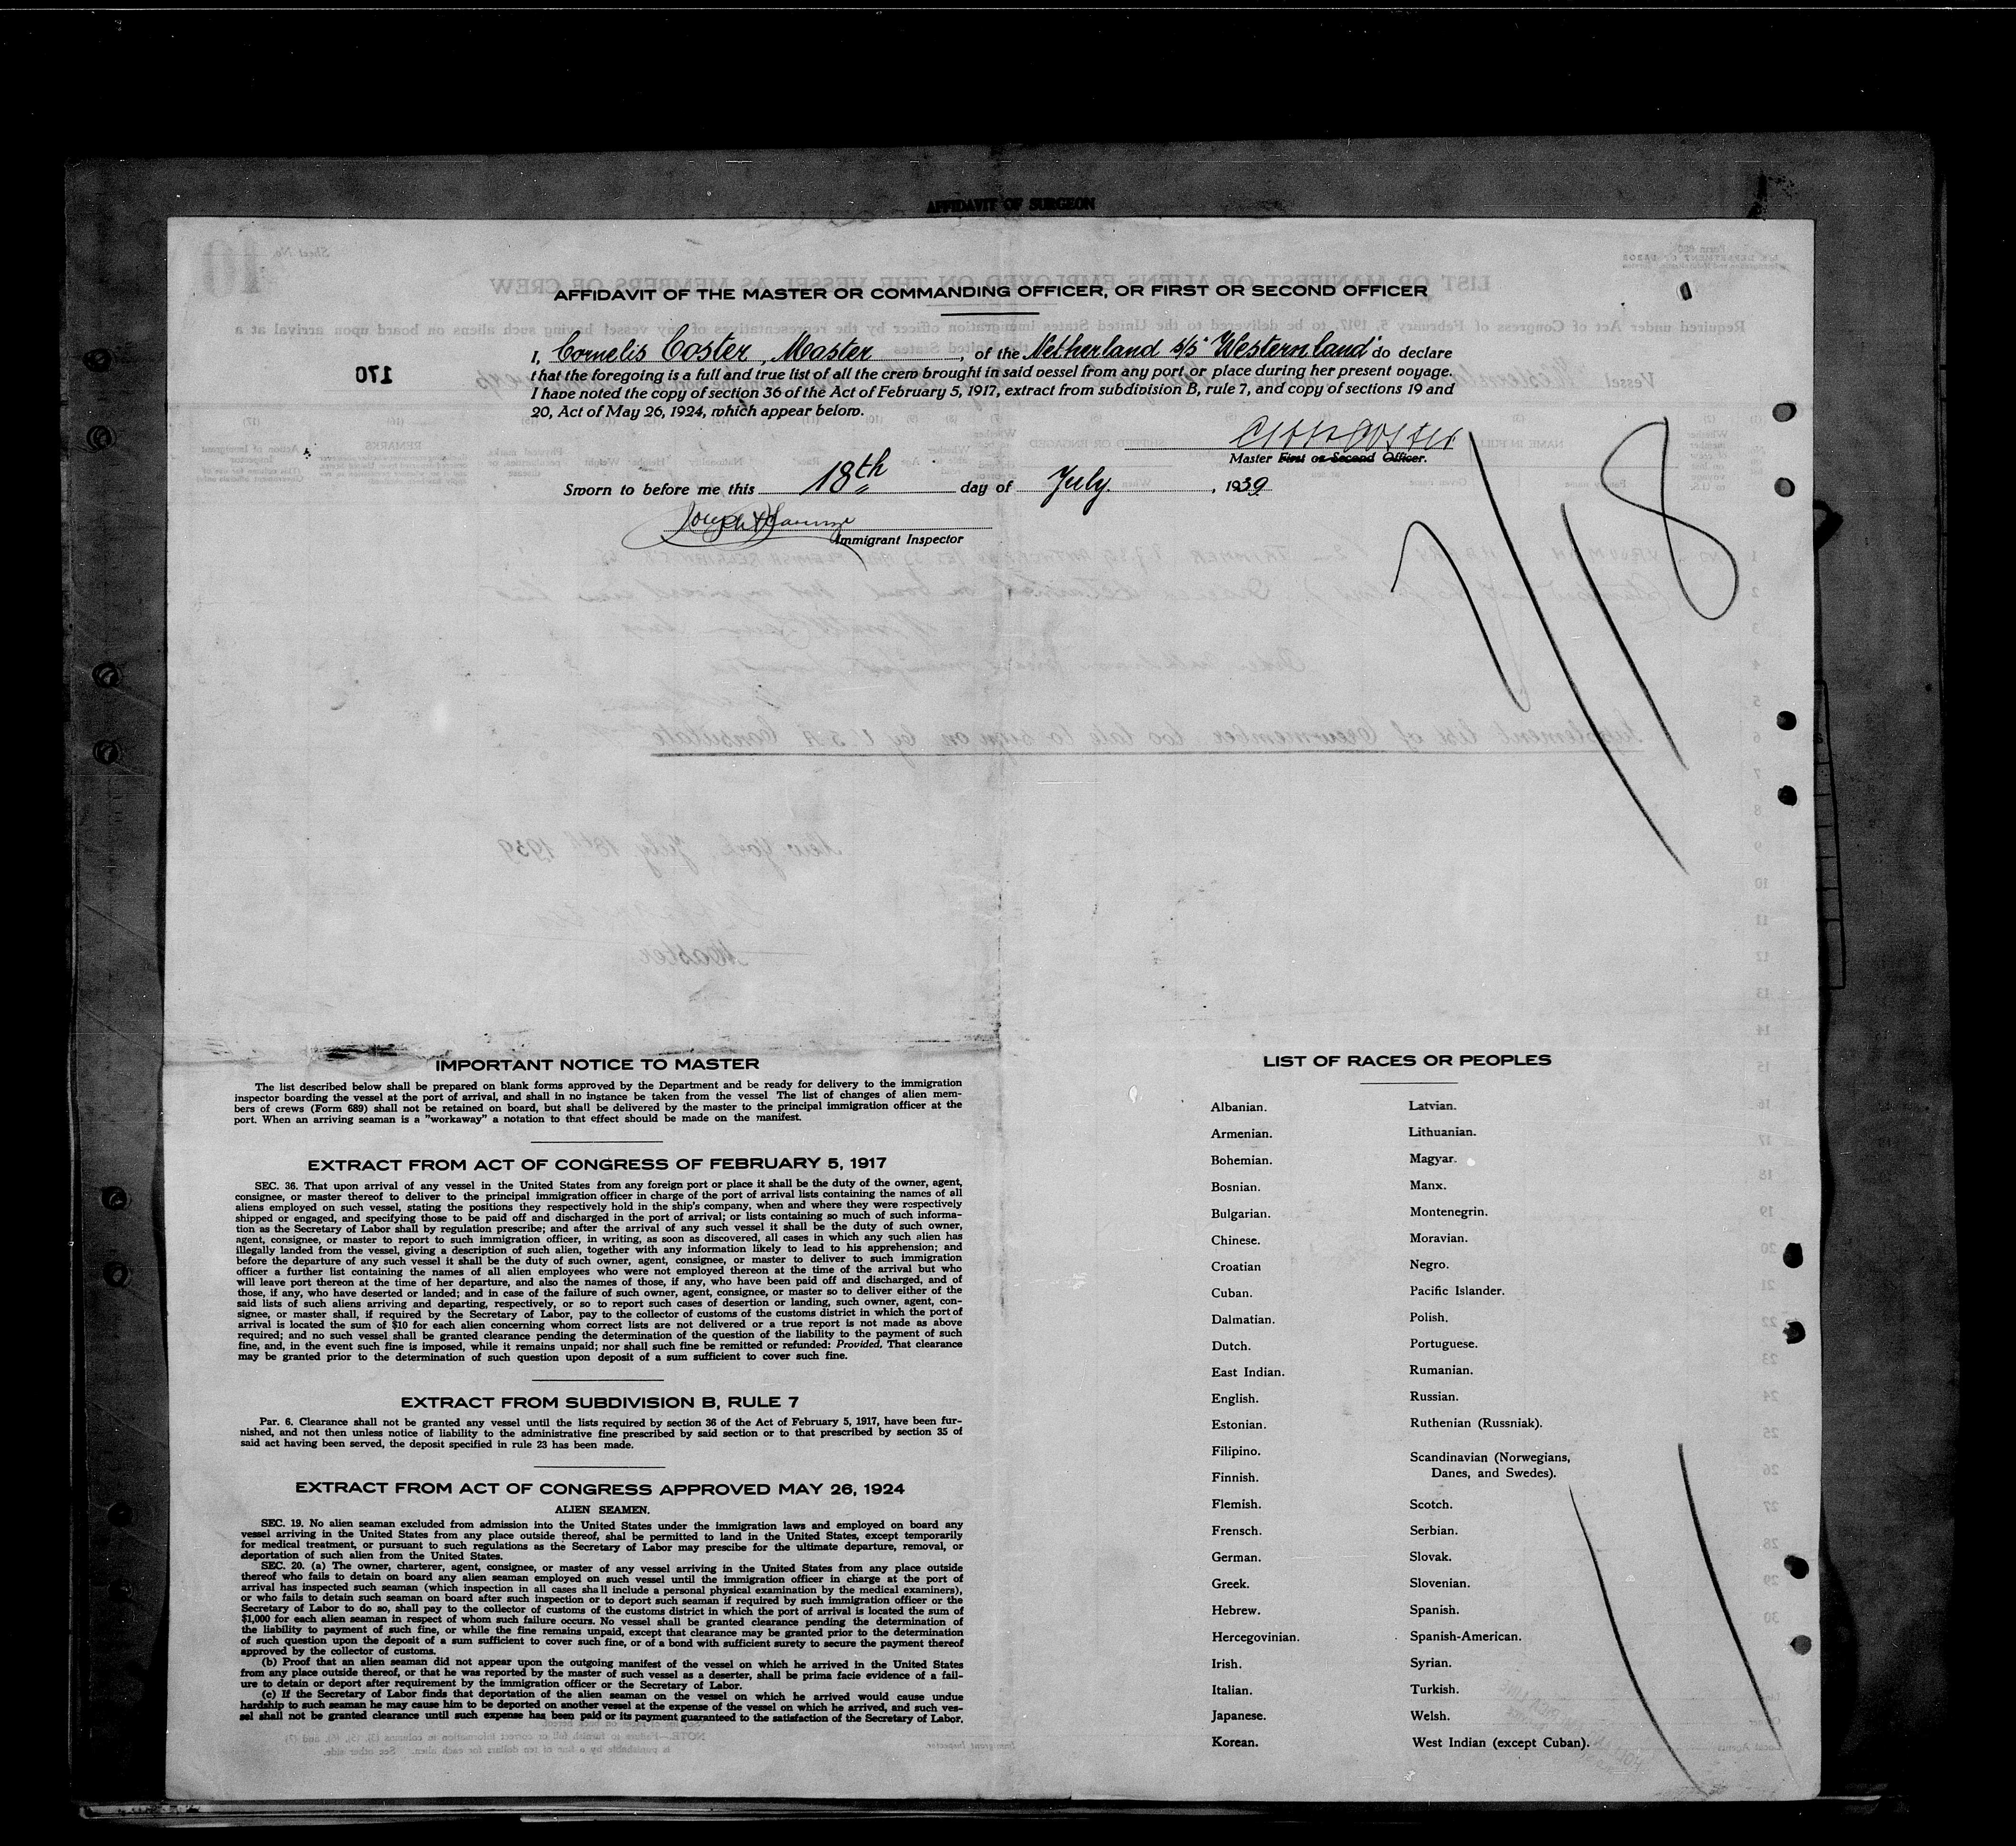 AFFIDAVIT OF SURGEON
AFFIDAVIT OF THE MASTER OR COMMANDING OFFICER, OR FIRST OR SECOND OFFICER
I, Cornelis Coster, Master, of the Netherland s/s "Westernland" do declare
that the foregoing is a full and true list of all the crew brought in said vessel from any port or place during her present voyage.
I have noted the copy of section 36 of the Act of February 5, 1917, extract from subdivision B, rule 7, and copy of sections 19 and
20, Act of May 26, 1924, which appear below.
Master First or Second Officer.
Sworn to before me this 18th day of July, 1939
Immigrant Inspector
170
IMPORTANT NOTICE TO MASTER
The list described below shall be prepared on blank forms approved by the Department and be ready for delivery to the immigration
inspector boarding the vessel at the port of arrival, and shall in no instance be taken from the vessel The list of changes of alien mem-
bers of crews (Form 689) shall not be retained on board, but shall be delivered by the master to the principal immigration officer at the
port. When an arriving seaman is a "workaway" a notation to that effect should be made on the manifest.
EXTRACT FROM ACT OF CONGRESS OF FEBRUARY 5, 1917
SEC. 36. That upon arrival of any vessel in the United States from any foreign port or place it shall be the duty of the owner, agent,
consignee, or master thereof to deliver to the principal immigration officer in charge of the port of arrival lists containing the names of all
aliens employed on such vessel, stating the positions they respectively hold in the ship's company, when and where they were respectively
shipped or engaged, and specifying those to be paid off and discharged in the port of arrival; or lists containing so much of such informa-
tion as the Secretary of Labor shall by regulation prescribe; and after the arrival of any such vessel it shall be the duty of such owner,
agent, consignee, or master to report to such immigration officer, in writing, as soon as discovered, all cases in which any such alien has
illegally landed from the vessel, giving a description of such alien, together with any information likely to lead to his apprehension; and
before the departure of any such vessel it shall be the duty of such owner, agent, consignee, or master to deliver to such immigration
officer a further list containing the names of all alien employees who were not employed thereon at the time of the arrival but who
will leave port thereon at the time of her departure, and also the names of those, if any, who have been paid off and discharged, and of
those, if any, who have deserted or landed; and in case of the failure of such owner, agent, consignee, or master so to deliver either of the
said lists of such aliens arriving and departing, respectively, or so to report such cases of desertion or landing, such owner, agent, con-
signee, or master shall, if required by the Secretary of Labor, pay to the collector of customs of the customs district in which the port of
arrival is located the sum of $10 for each alien concerning whom correct lists are not delivered or a true report is not made as above
required; and no such vessel shall be granted clearance pending the determination of the question of the liability to the payment of such
fine, and, in the event such fine is imposed, while it remains unpaid; nor shall such fine be remitted or refunded: Provided, That clearance
may be granted prior to the determination of such question upon deposit of a sum sufficient to cover such fine.
EXTRACT FROM SUBDIVISION B, RULE 7
Par. 6. Clearance shall not be granted any vessel until the lists required by section 36 of the Act of February 5, 1917, have been fur-
nished, and not then unless notice of liability to the administrative fine prescribed by said section or to that prescribed by section 35 of
said act having been served, the deposit specified in rule 23 has been made.
EXTRACT FROM ACT OF CONGRESS APPROVED MAY 26, 1924
ALIEN SEAMEN.
SEC. 19. No alien seaman excluded from admission into the United States under the immigration laws and employed on board any
vessel arriving in the United States from any place outside thereof, shal be permitted to land in the United States, except temporarily
for medical treatment, or pursuant to such regulations as the Secretary of Labor may prescibe for the ultimate departure, removal, or
deportation of such alien from the United States.
SEC. 20. (a) The owner, charterer, agent, consignee, or master of any vessel arriving in the United States from any place outside
thereof who fails to detain on board any alien seaman employed on such vessel until the immigration officer in charge at the port of
arrival has inspected such seaman (which inspection in all cases shall include a personal physical examination by the medical examiners),
or who fails to detain such seaman on board after such inspection or to deport such seaman if required by such immigration officer or the
Secretary of Labor to do so, shall pay to the collector of customs of the customs district in which the port of arrival is located the sum of
$1,000 for each alien seaman in respect of whom such failure occurs. No vessel shall be granted clearance pending the determination of
the liability to payment of such fine, or while the fine remains unpaid, except that clearance may be granted prior to the determination
of such question upon the deposit of a sum sufficient to cover such fine, or of a bond with sufficient surety to secure the payment thereof
approved by the collector of customs.
(b) Proof that an alien seaman did not appear upon the outgoing manifest of the vessel on which he arrived in the United States
from any place outside thereof, or that he was reported by the master of such vessel as a deserter, shall be prima facie evidence of a fail-
ure to detain or deport after requirement by the immigration officer or the Secretary of Labor.
(c) If the Secretary of Labor finds that deportation of the alien seaman on the vessel on which he arrived would cause undue
hardship to such seaman he may cause him to be deported on another vessel at the expense of the vessel on which he arrived, and such ves-
sel shall not be granted clearance until such expense has been paid or its payment guaranteed to the satisfaction of the Secretary of Labor.
LIST OF RACES OR PEOPLES
Albanian.
Armenian.
Bohemian.
Bosnian.
Bulgarian.
Chinese.
Croatian
Cuban.
Dalmatian.
Dutch.
East Indian.
English.
Estonian.
Filipino.
Finnish.
Flemish.
Frensch.
German.
Greek.
Hebrew.
Hercegovinian.
Irish.
Italian.
Japanese.
Korean.
Latvian.
Lithuanian.
Magyar.
Manx.
Montenegrin.
Moravian.
Negro.
Pacific Islander.
Polish.
Portuguese.
Rumanian.
Russian.
Ruthenian (Russniak).
Scandinavian (Norwegians,
Danes, and Swedes).
Scotch.
Serbian.
Slovak.
Slovenian.
Spanish.
Spanish-American.
Syrian.
Turkish.
Welsh.
West Indian (except Cuban).